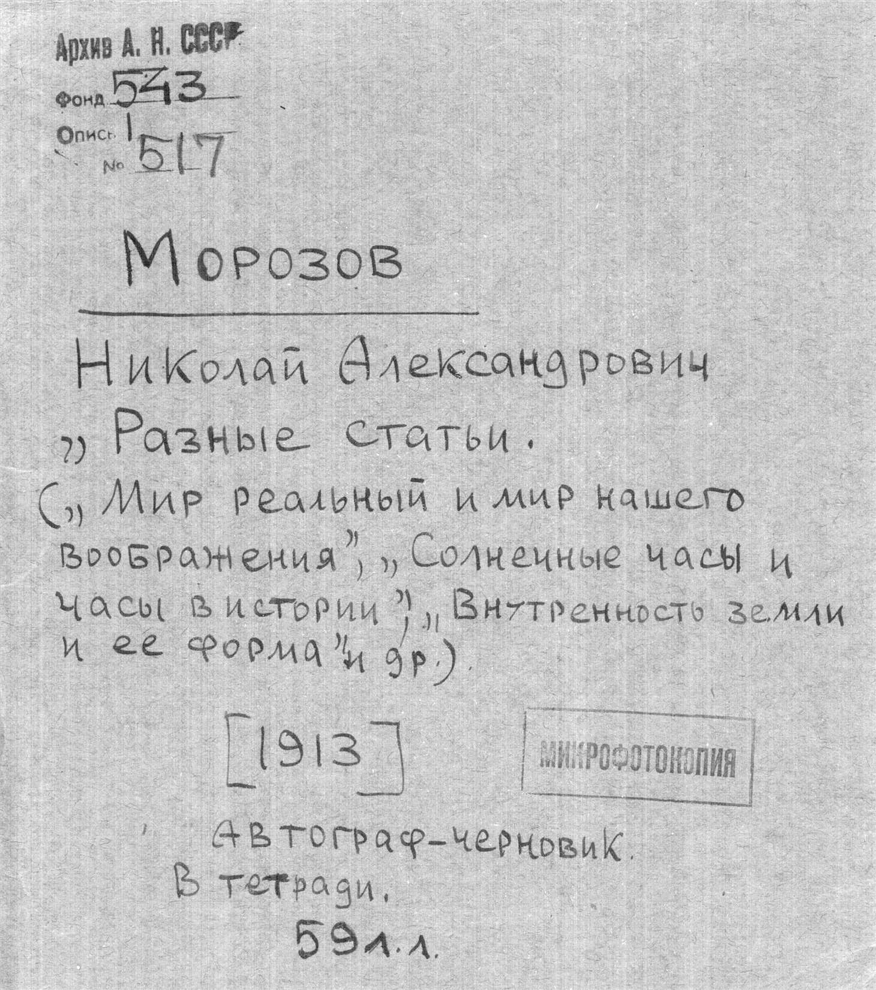 Архив А. Н. СССР
Фонд 543
Опись 1
№ 517
Морозов
Николай Александрович
„ Разные статьи.
(„ Мир реальный и мир нашего
воображения”, „Солнечные часы и
часы в истории”, „Внутренность земли
и ее форма” и др.).
[1913]
МИКРОФОТОКОПИЯ
Автограф-черновик.
В тетради.
59 л.л.